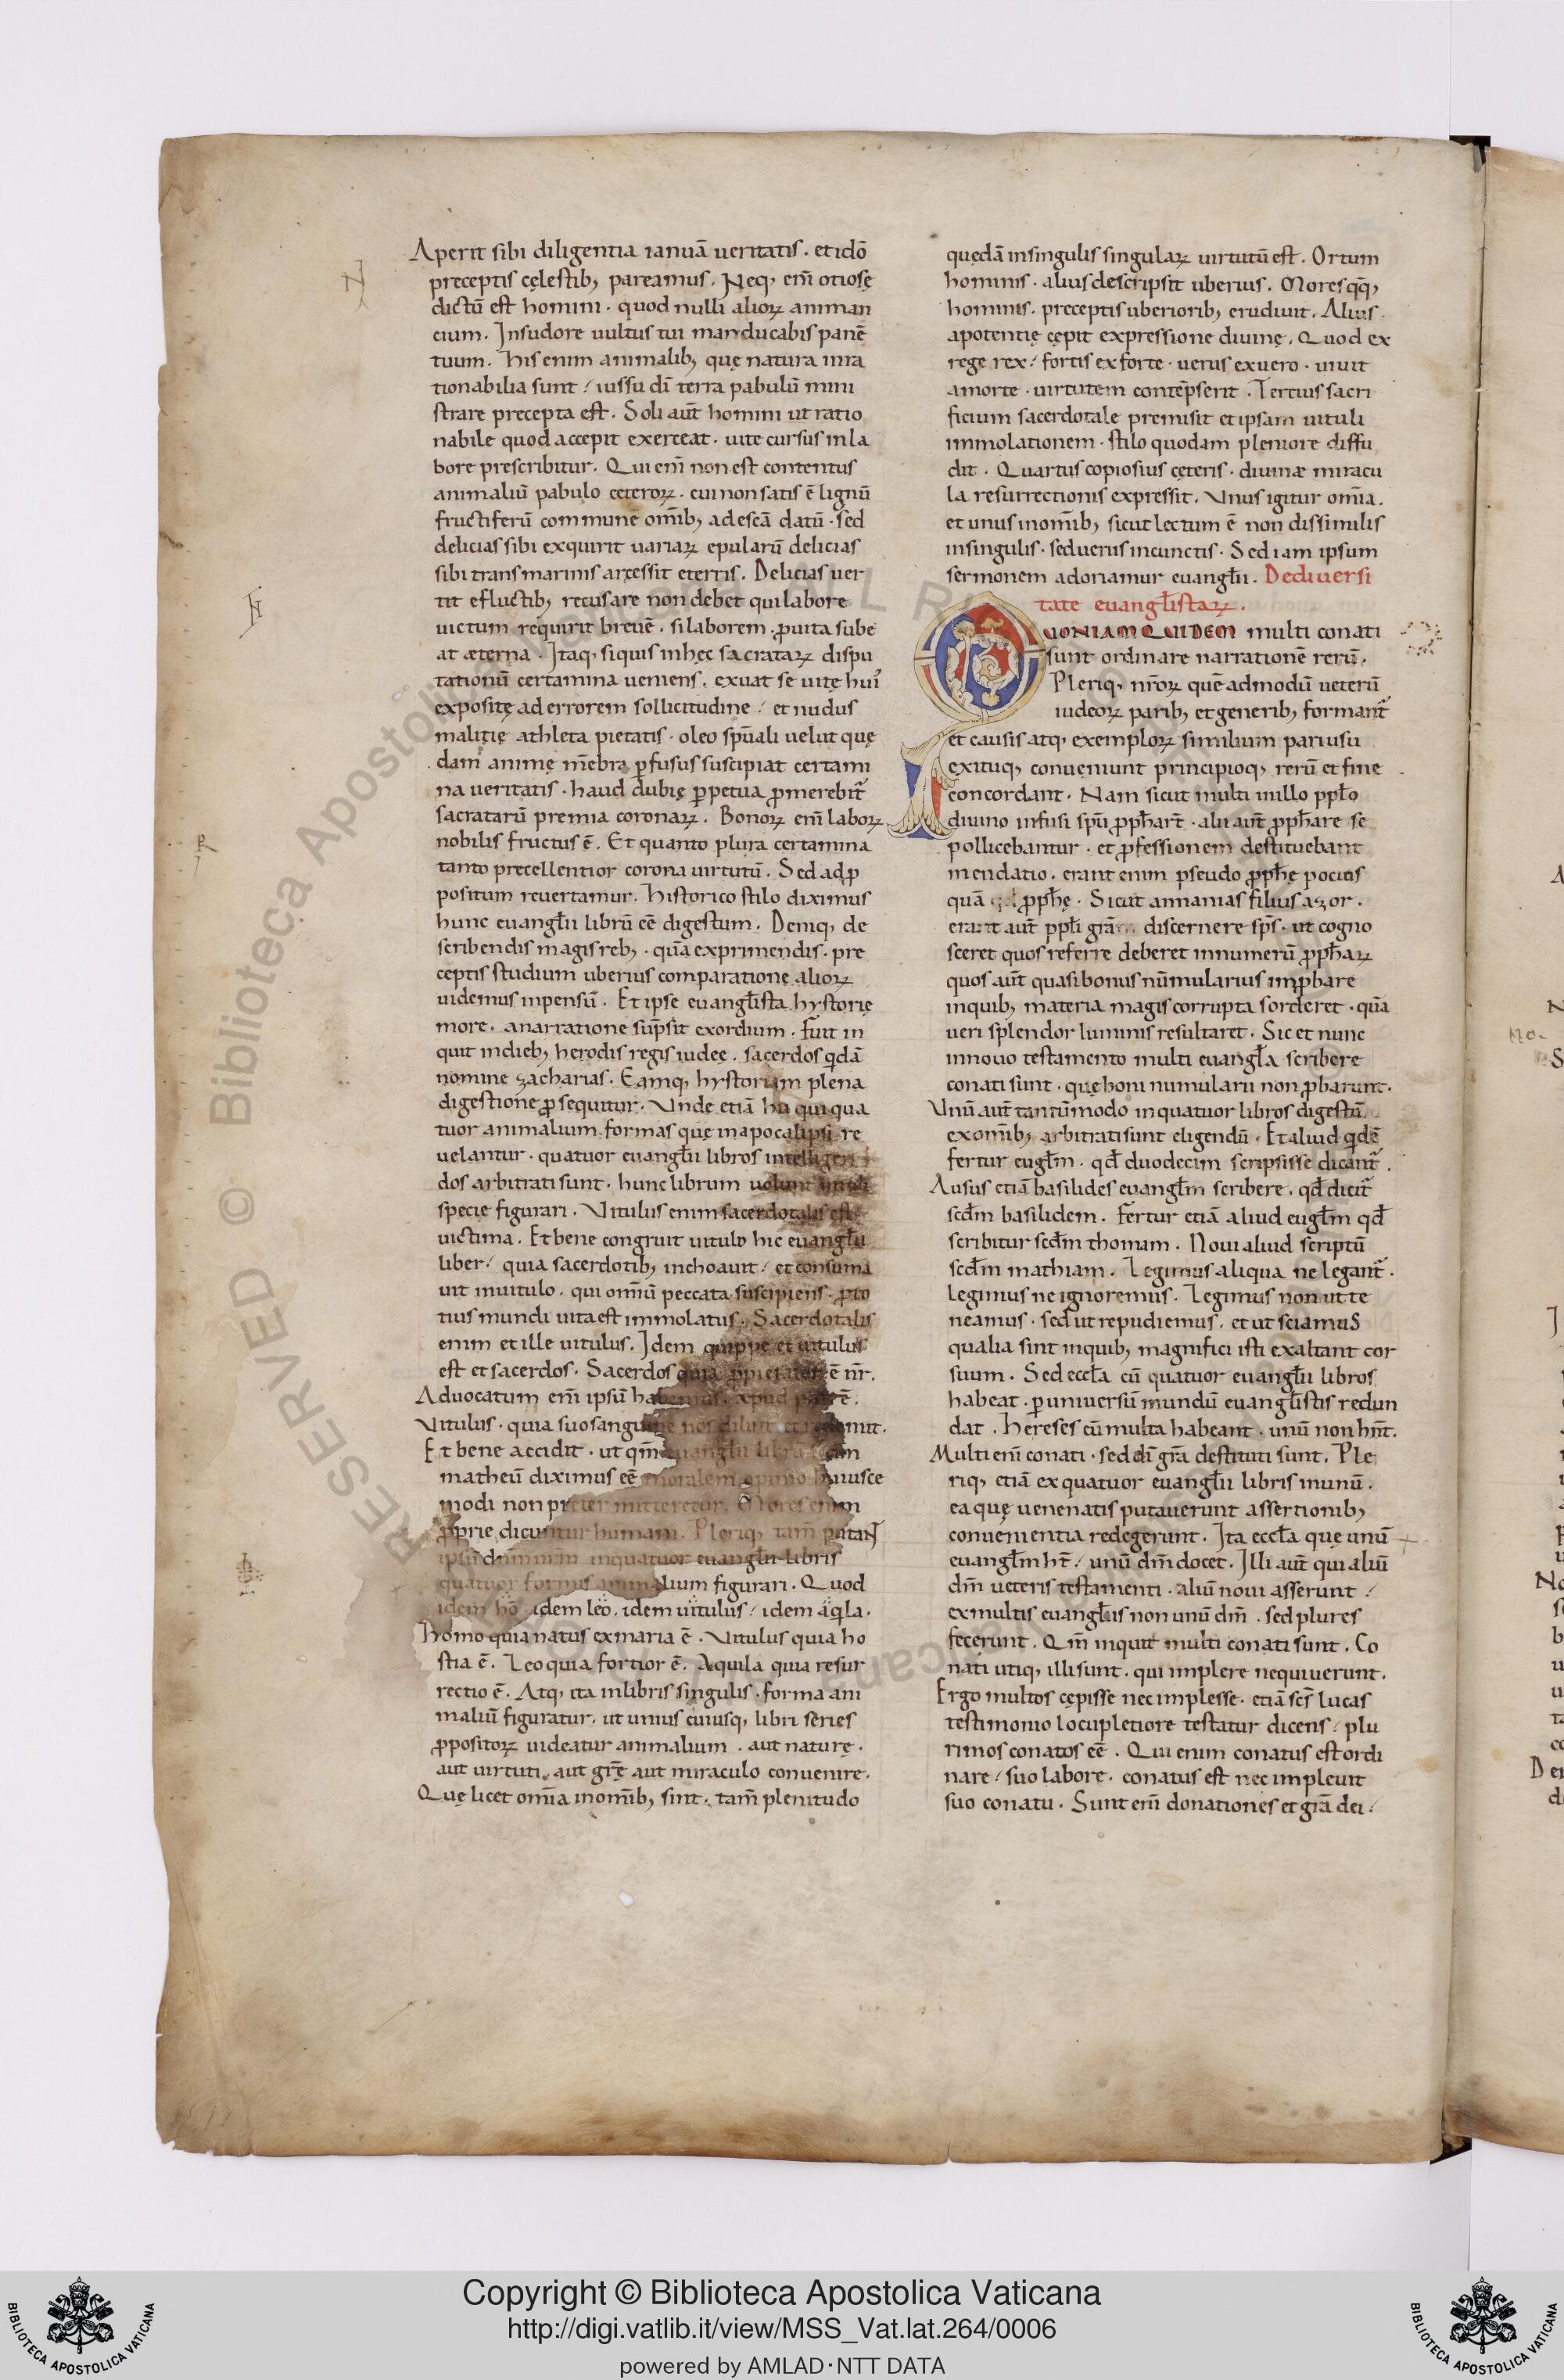 Aperit sibi diligentia ianuā ueritatis. et idō
preceptis cęlestib; pareamus. Neq; eni̅ otiosę
dictū est homini. quod nulli alioꝝ animan
cium. Insudore uultus tui manducabis panē
tuum. His enim animalib; quę natura irra
tionabilia sunt / iussu dī terra pabulū mini
strare precepta est. Soli aut̅ homini ut ratio
nabile quod accepit exerceat. uite cursus inla
bore prescribitur. Qui eni̅ non est contentus
animaliū pabulo ceteroꝝ. cui non satis ē lignū
fructiferū commune omīb; adescā datū. sed
delicias sibi exquirit uariaꝝ epularū delicias
sibi transmarinis arcessit eterris. Delicias uer
tit efluctib; recusare non debet qui labore
uictum requirit breuē. si laborem ꝓ uita sube
at æterna. Itaq; siquis inhęc sacrataꝝ dispu
tationū certamina ueniens. exuat se uitę hui᷒
expositę ad errorem sollicitudine / et nudus
malitię athleta pietatis. oleo spūali uelut quę
dam animę m̄ebra ꝑfusus suscipiat certami
na ueritatis. haud dubię ꝑpetua ꝓmerebit᷑
sacratarū premia coronaꝝ. Bonoꝝ eni̅ laboꝝ
nobilis fructus ē. Et quanto plura certamina
tanto precellentior corona uirtutū. Sed adꝓ
positum reuertamur. Historico stilo diximus
hunc euangl̅ii librū eē digestum. Deniq; de
scribendis magis reb;. quā exprimendis. pre
ceptis studium uberius comparatione alioꝝ
uidemus inpensū. Et ipse euangl̅ista hystorię
more. anarratione sūpsit exordium. Fuit in
quit indieb; herodis regis iudeę. sacerdos qdā
nomine zacharias. Eamq; hystoriam plena
digestione ꝓsequitur. Vnde etiā hii qui qua
tuor animalium formas quę inapocalipsi re
uelantur. quatuor euangl̅ii libros intelligen
dos arbitrati sunt. hunc librum uolunt uituli
specie figurari. Vitulus enim sacerdotalis est
uictima. Et bene congruit uitulo hic euangl̅ii
liber / quia sacerdotib; inchoauit / et consuma
uit inuitulo. qui omīū peccata suscipiens. ꝓ to
tius mundi uita est immolatus. Sacerdotalis
enim et ille uitulus. Idem quippe et uitulus
est et sacerdos. Sacerdos quia ꝓpitiator ē nr̄.
Aduocatum eni̅ ipsū habemus apud patrē.
Vitulus. quia suo sanguine nos diluit et redemit.
Et bene accidit. ut qm̄ euangl̅ii librū
matheū diximus eē moralem. opinio huiusce
modi non preter mitteretur. Mores enim
ꝓprie dicuntur humani. Pleriq; tam̄ putant
ipsū dnm̄ inquatuor euangl̅ii libris
quatuor formis animalium figurari. Quod
idem hō. idem leo. idem uitulus / idem aqila.
Homo quia natus exmaria ē. Vitulus quia ho
stia ē. Leo quia fortior ē. Aquila quia resur
rectio ē. Atq; ita inlibris singulis. forma ani
maliū figuratur. ut unius cuiusq; libri series
ꝓpositoꝝ uideatur animalium. aut naturę.
aut uirtuti. aut grę̄ aut miraculo conuenire.
Quę licet omīa inomīb; sint. tam̄ plenitudo
quędā insingulis singulaꝝ uirtutū est. Ortum
hominis. alius descripsit uberius. Mores qq̄;
hominis. preceptis uberiorib; erudiuit. Alius
apotentię cępit expressione diuinę. Quod ex
rege rex / fortis exforte. uerus exuero. uiuit
amorte. uirtutem contēpserit. Tertius sacri
ficium sacerdotale premisit et ipsam uituli
immolationem. stilo quodam pleniore diffu
dit. Quartus copiosius cęteris. diuinæ miracu
la resurrectionis expressit. Vnus igitur omīa.
et unus inomīb; sicut lectum ē non dissimilis
insingulis. sed uerus incunctis. Sed iam ipsum
sermonem adoriamur euangl̅ii. Dediuersi
tate euangl̅istaꝝ.
QUONIAM QUIDEM multi conati
sunt ordinare narrationē rerū.
Pleriq; nr̄oꝝ quē admodū ueterū
iudeoꝝ parib; et generib; formant᷑
et causis atq; exemploꝝ similium pari usu
exituq; conueniunt principioq; rerū et fine
concordant. Nam sicut multi inillo ppl̅o
diuino infusi spū ꝓph̅art̄. alii aut̅ ꝓph̅are se
pollicebantur. et ꝓfessionem destituebant
mendatio. erant enim pseudo ꝓph̅ę pocius
quā ꝓph̅ę. Sicut annanias filius azor.
erat aut̅ ppl̅i grā discernere sps̄. ut cogno
sceret quos referre deberet innumerū ꝓph̅aꝝ
quos aut̅ quasi bonus nūmularius imꝓbare
inquib; materia magis corrupta sorderet. quā
ueri splendor luminis resultaret. Sic et nunc
innouo testamento multi euangl̅a scribere
conati sunt. quę boni numularii non ꝓbarunt.
Vnū aut̅ tantūmodo inquatuor libros digestū
exomīb; arbitrati sunt eligendū. Et aliud qdē
fertur eugl̅m. qd̄ duodecim scripsisse dicant᷑.
Ausus etiā basilides euangl̅m scribere. qd̄ dicit᷑
scd̅m basilidem. Fertur etiā aliud eugl̅m qd̄
scribitur scd̅m thomam. Noui aliud scriptū
scd̅m mathiam. Legimus aliqua ne legant᷑.
Legimus ne ignoremus. Legimus non ut te
neamus. sed ut repudiemus. et ut sciamus
qualia sint inquib; magnifici isti exaltant cor
suum. Sed eccl̅a cū quatuor euangl̅ii libros
habeat. ꝑ uniuersū mundū euangl̅istis redun
dat. Hereses cū multa habeant. unū non hn̄t.
Multi eni̅ conati. sed dī grā destituti sunt. Ple
riq; etiā exquatuor euangl̅ii libris inunū.
ea quę uenenatis putauerunt assertionib;
conuenientia redegerunt. Ita eccl̅a quę unū
euangl̅m ht̄ / unū dm̄ docet. Illi aut̅ qui aliū
dm̄ ueteris testamenti. aliū noui asserunt /
exmultis euangl̅iis non unū dm̄. sed plures
fecerunt. Qm̄ inquit multi conati sunt. Co
nati utiq; illi sunt. qui implere nequiuerunt.
Ergo multos cępisse nec implesse. etiā scs̄ lucas
testimonio locupletiore testatur dicens / plu
rimos conatos eē. Qui enim conatus est ordi
nare / suo labore. conatus est nec impleuit
suo conatu. Sunt eni̅ donationes et grā dei /
Biblioteca Apostolica Vaticana
Copyright © Biblioteca Apostolica Vaticana
http://digi.vatlib.it/view/MSS_Vat.lat.264/0006
powered by AMLAD·NTT DATA
BIBLIOTECA APOSTOLICA VATICANA
BIBLIOTECA APOSTOLICA VATICANA